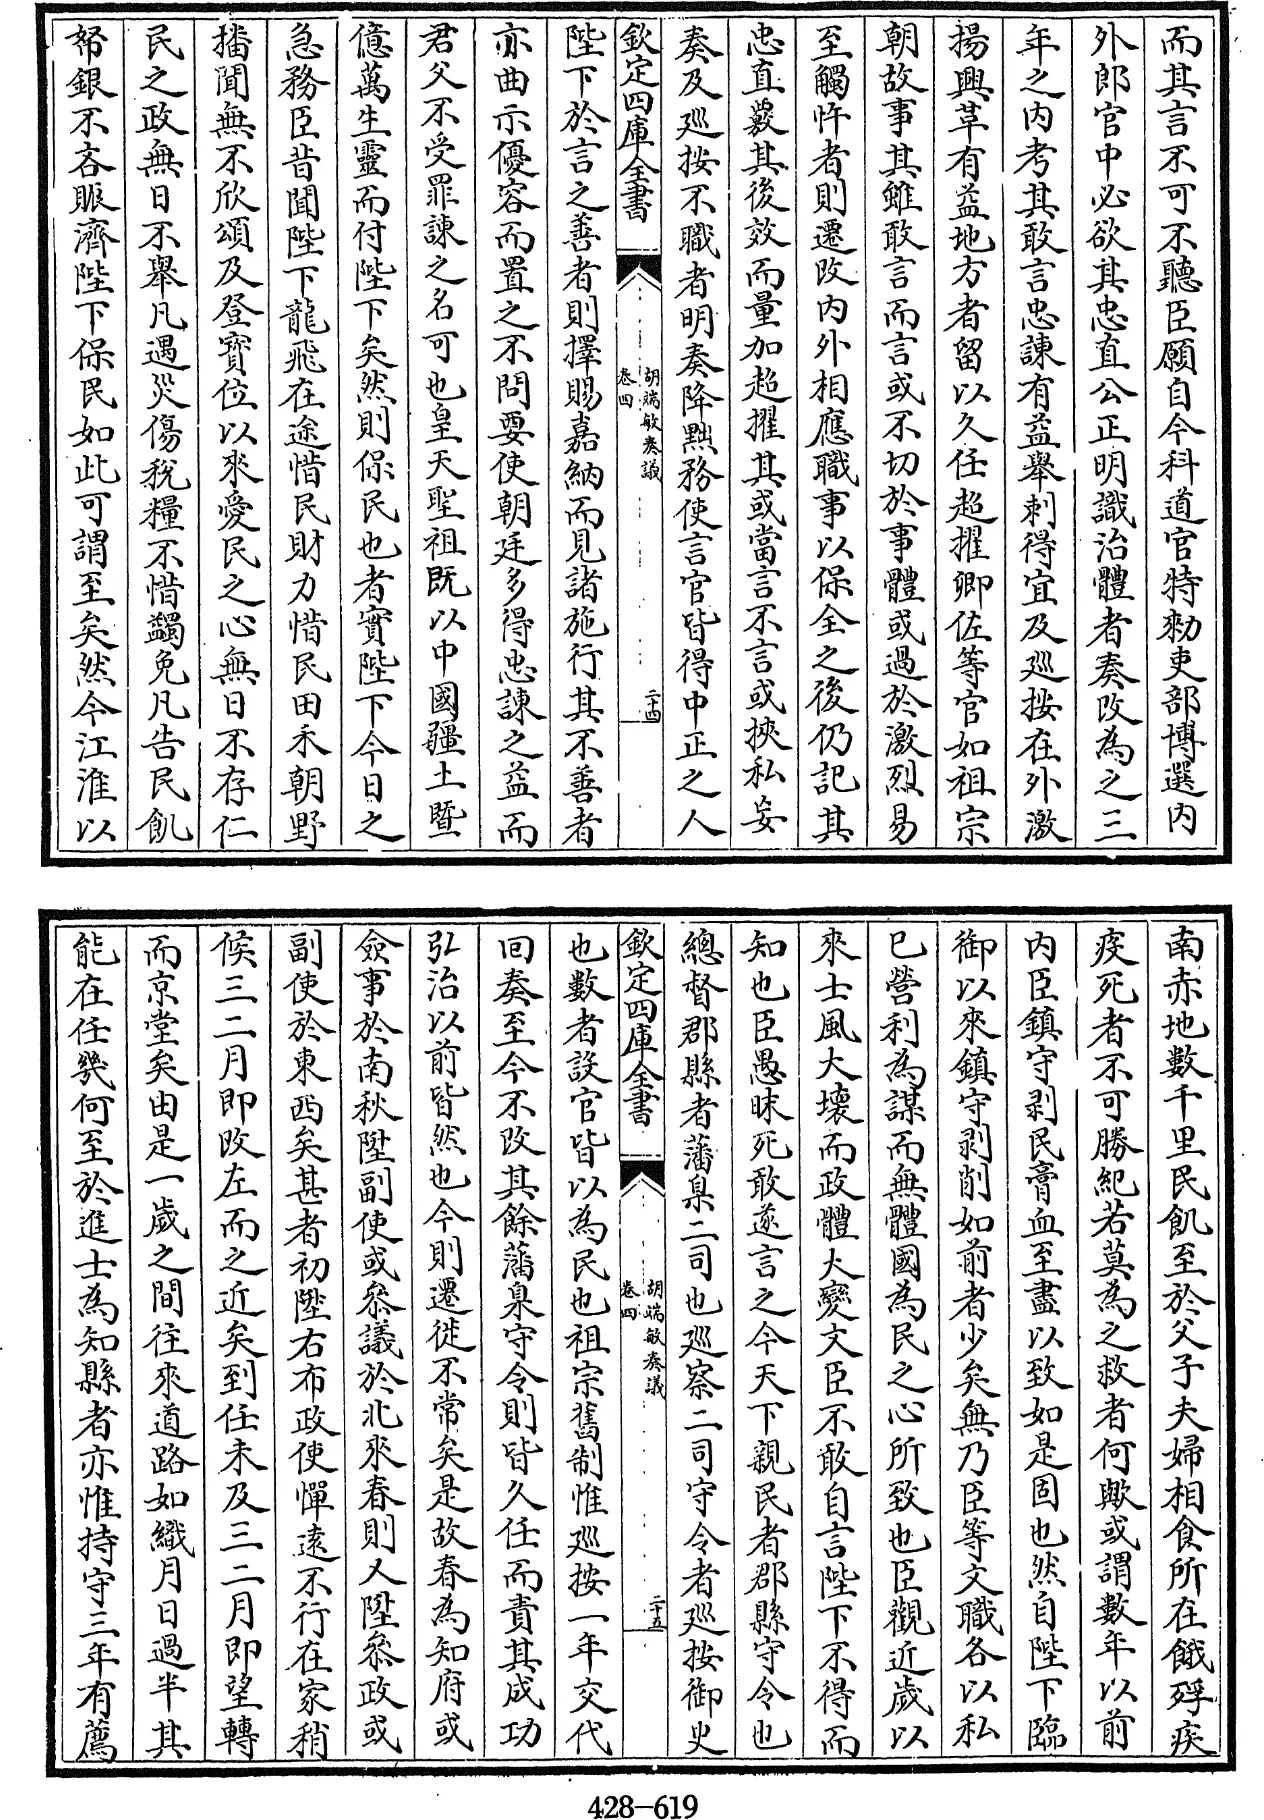 而其言不可不聽臣願自今科道官特勑吏部博選内
外郎官中必欲其忠直公正明識治體者奏改為之三
年之内考其敢言忠諫有益舉刺得宜及巡按在外激
揚興革有益地方者留以久任超擢卿佐等官如祖宗
朝故事其雖敢言而言或不切於事體或過於激烈易
至觸忤者則遷改内外相應職事以保全之後仍記其
忠直覈其後效而量加超擢其或當言不言或挾私妄
奏及巡按不職者明奏降黜務使言官皆得中正之人
欽定四庫全書
胡端敏奏議
卷四
二十四
陛下於言之善者則擇賜嘉納而見諸施行其不善者
亦曲示優容而置之不問要使朝廷多得忠諫之益而
君父不受罪諫之名可也皇天聖祖既以中國疆土暨
億萬生靈而付陛下矣然則保民也者實陛下今日之
急務臣昔聞陛下龍飛在途惜民財力惜民田禾朝野
播聞無不欣頌及登寳位以來愛民之心無日不存仁
民之政無日不舉凡遇災傷稅糧不惜蠲免凡告民飢
帑銀不吝賑濟陛下保民如此可謂至矣然今江淮以
南赤地數千里民飢至於父子夫婦相食所在餓殍疾
疫死者不可勝紀若莫為之救者何歟或謂數年以前
内臣鎮守剥民膏血至盡以致如是固也然自陛下臨
御以來鎮守剥削如前者少矣無乃臣等文職各以私
已營利為謀而無體國為民之心所致也臣觀近歲以
來士風大壞而政體大變文臣不敢自言陛下不得而
知也臣愚昧死敢遂言之今天下親民者郡縣守令也
總督郡縣者藩臬二司也巡察二司守令者巡按御史
欽定四庫全書
胡端敏奏議
卷四
二十五
也數者設官皆以為民也祖宗舊制惟巡按一年交代
回奏至今不改其餘藩臬守令則皆久任而責其成功
弘治以前皆然也今則遷徙不常矣是故春為知府或
僉事於南秋陞副使或叅議於北來春則又陞叅政或
副使於東西矣甚者初陞右布政使憚遠不行在家稍
候三二月即改左而之近矣到任未及三二月即望轉
而京堂矣由是一歲之間往來道路如織月日過半其
能在任幾何至於進士為知縣者亦惟持守三年有薦
428—619